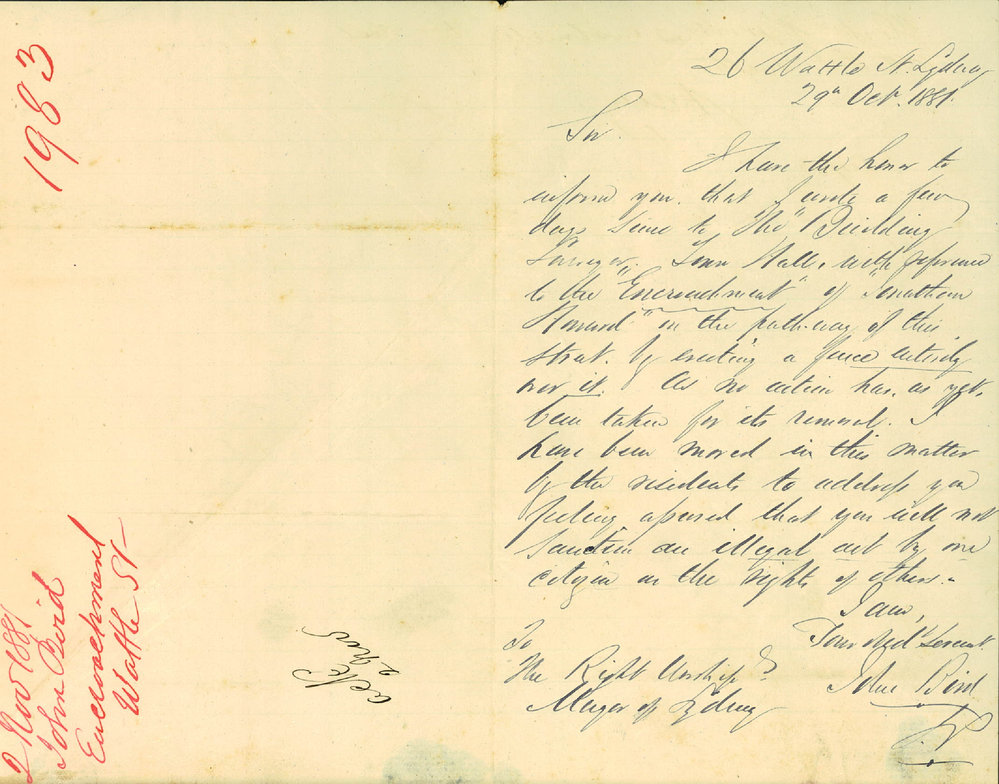 1983
2 Nov 1881
John Bird
Encroachment
Wattle St
ackd
2 Nov
26 Wattle St. Sydney
29th Octr. 1881.
Sir.
I have the honor to
inform you, that I wrote a few
days since to "The" Building
Surveyor. Town Hall, with reference
to the "Encroachment" of "Jonathan
Howard" on the path-way of this
street. by erecting a fence entirely
over it. As no action has, as yet,
been taken for its removal. I
have been moved in this matter
by the residents to address you
feeling assured that you will not
sanction an illegal act by one
citizen on the rights of others.
I am,
Your Obed Servant
John Bird
To
The Right Worshipl
Mayor of Sydney